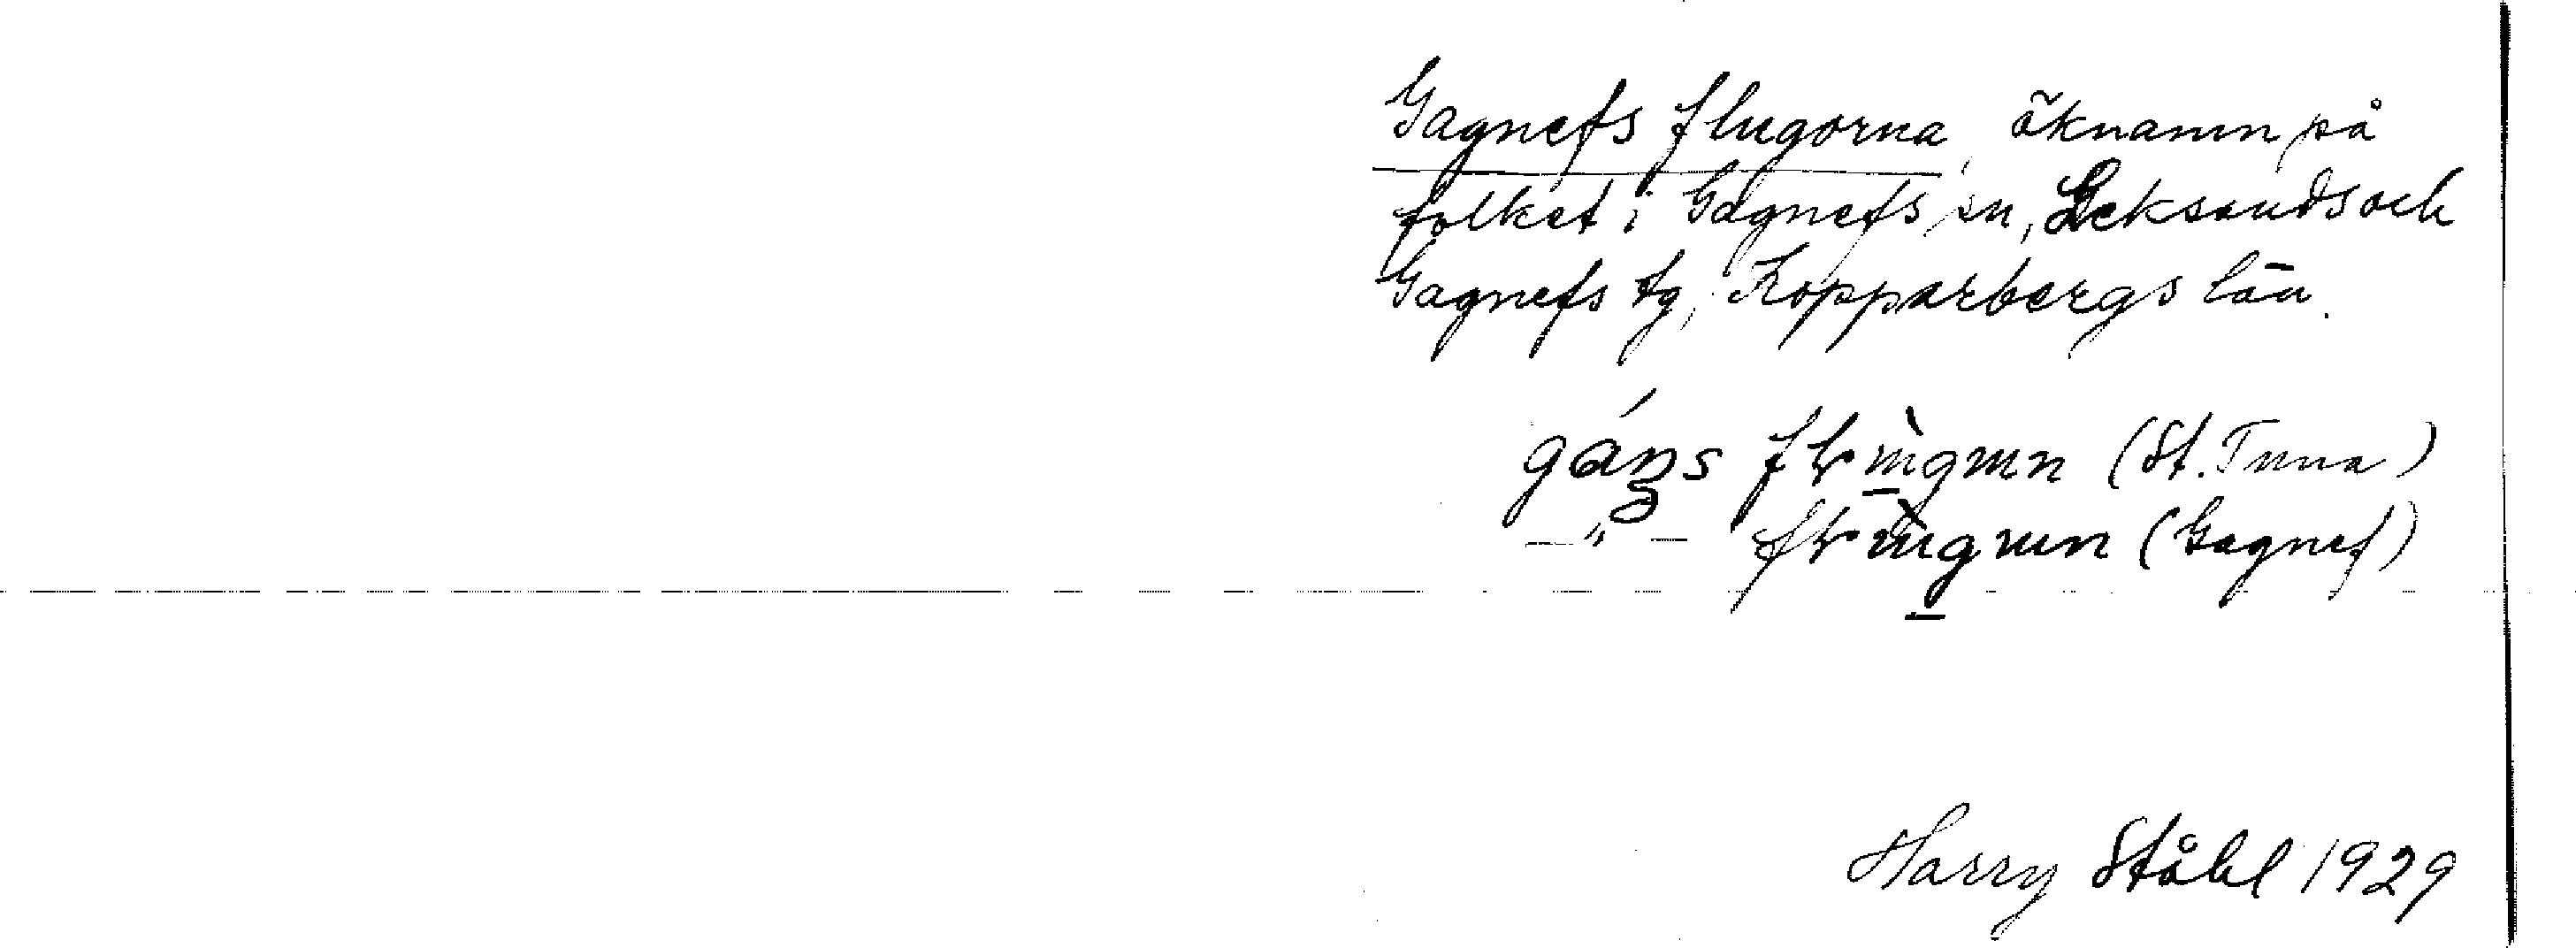 Gagnefs flugorna, öknamn på
folket i Gagnefs sn, Leksands och
Gagnefs tg, Kopparbergs län.
(St. Tuna)
–"– (Gagnef)
Harry Ståhl 1929